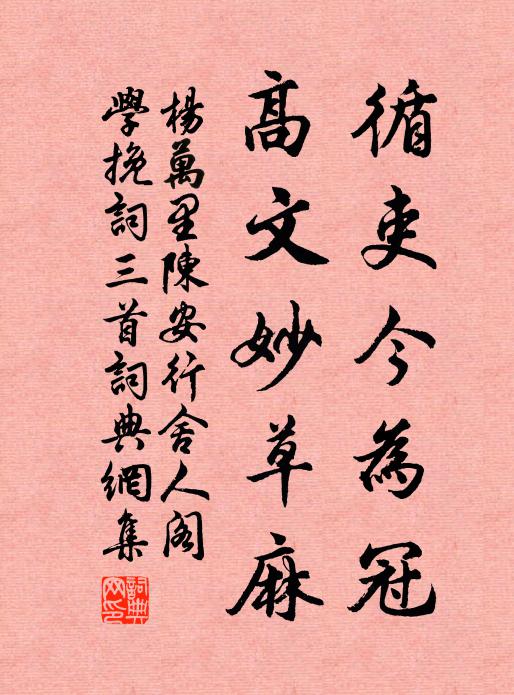 循吏今為冠
高文妙草麻
楊萬里陳安行舍人閣
學挽詞三首詞典網集
詞典網印